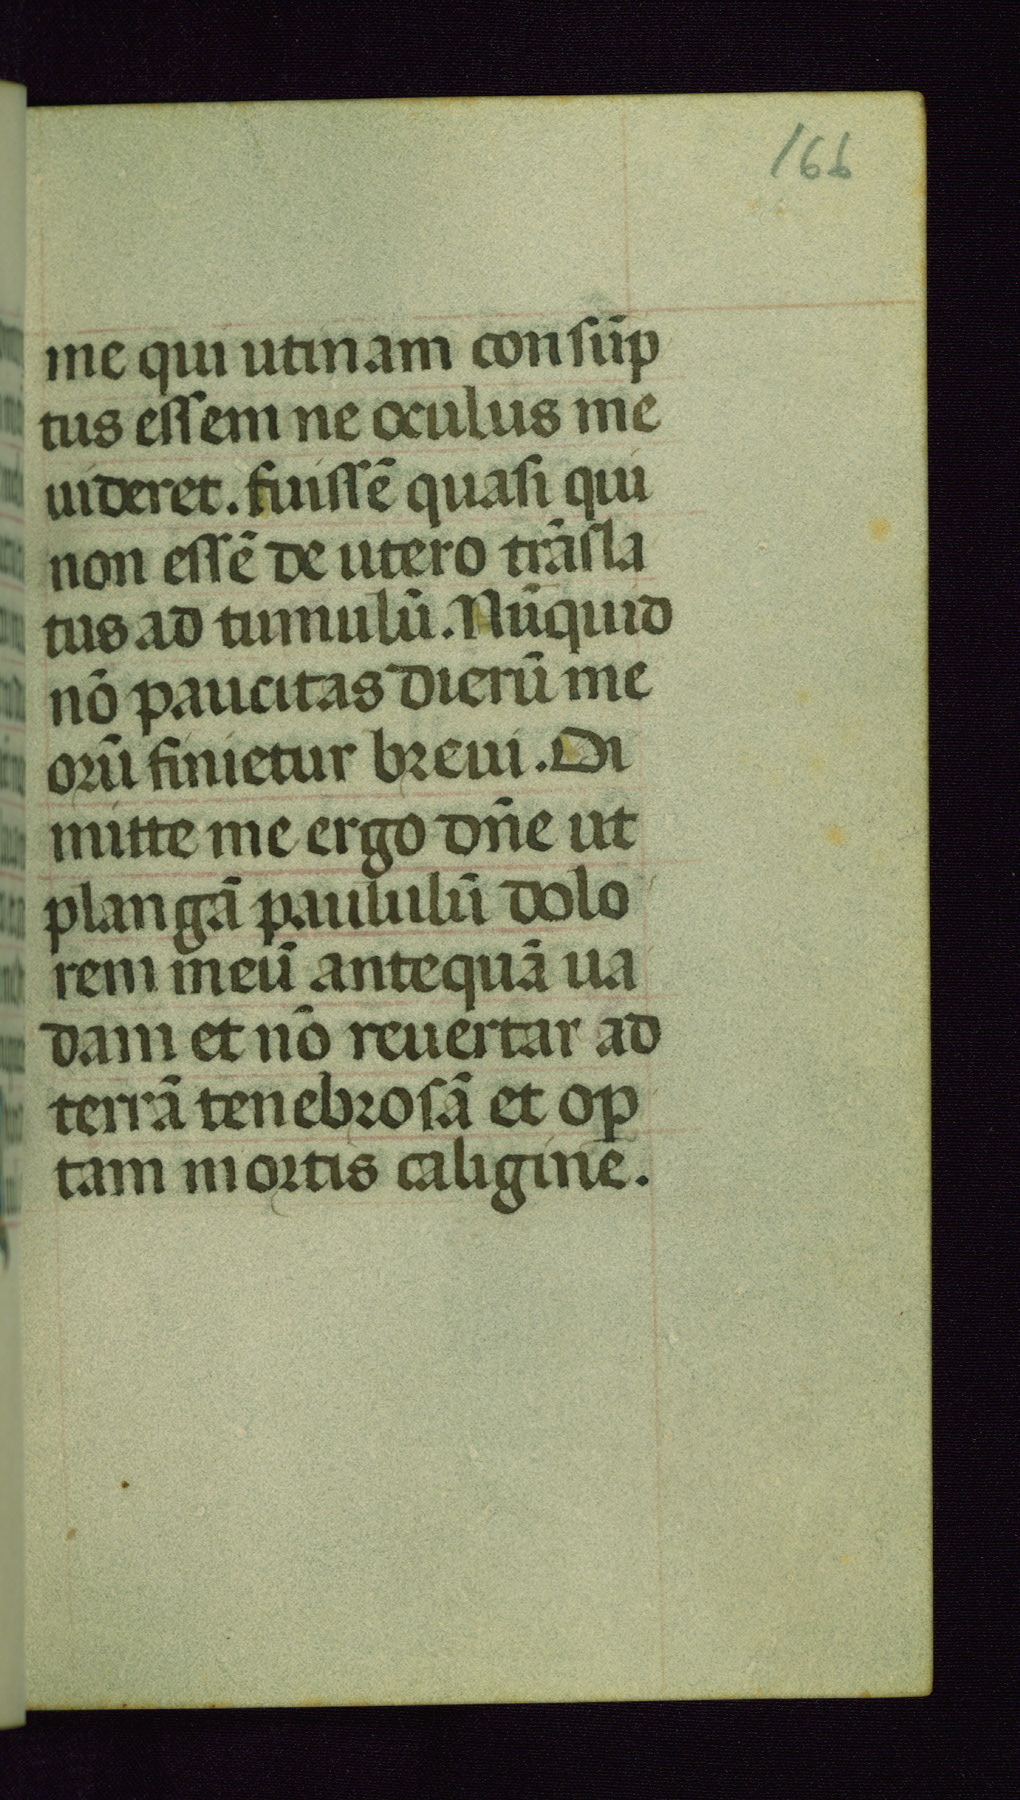 166
me qui utinam consūp
tus essem ne oculus me
uideret. fuissē quasi qui
non essē de utero trāsla
tus ad tumulū. Nūquid
nō paucitas dierū me
orū finietur breui. Di
mitte me ergo dn̄e ut
plangā paululū dolo
rem meū antequā ua
dam et nō reuertar ad
terrā tenebrosā et op
tam mortis caligine.